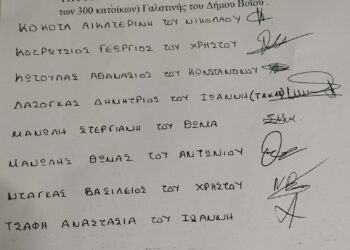 των 300 κατοίκων) Γαλατινής του Δήμου Βοΐου .
ΚΟΚΟΤΑ ΑΙΚΑΤΕΡΙΝΗ ΤΟΥ ΝΙΚΟΛΑΟΥ
ΚΟΣΡΩΤΣΙΟΣ ΓΕΩΡΓΙΟΣ ΤΟΥ ΧΡΗΣΤΟΥ
ΚΩΤΟΥΛΑΣ ΑΘΑΝΑΣΙΟΣ ΤΟΥ ΚΩΝΣΤΑΝΤΙΝΟΥ
ΛΑΖΟΓΚΑΣ ΔΗΜΗΤΡΙΟΣ ΤΟΥ ΙΩΑΝΝΗ (ΤΑΚΑΣ)
ΜΑΝΩΛΗ ΣΤΕΡΓΙΑΝΗ ΤΟΥ ΘΩΜΑ
ΜΑΝΩΛΗΣ ΘΩΜΑΣ ΤΟΥ ΑΝΤΩΝΙΟΥ
ΝΤΑΓΚΑΣ ΒΑΣΙΛΕΙΟΣ ΤΟΥ ΧΡΗΣΤΟΥ
ΤΖΑΦΗ ΑΝΑΣΤΑΣΙΑ ΤΟΥ ΙΩΑΝΝΗ